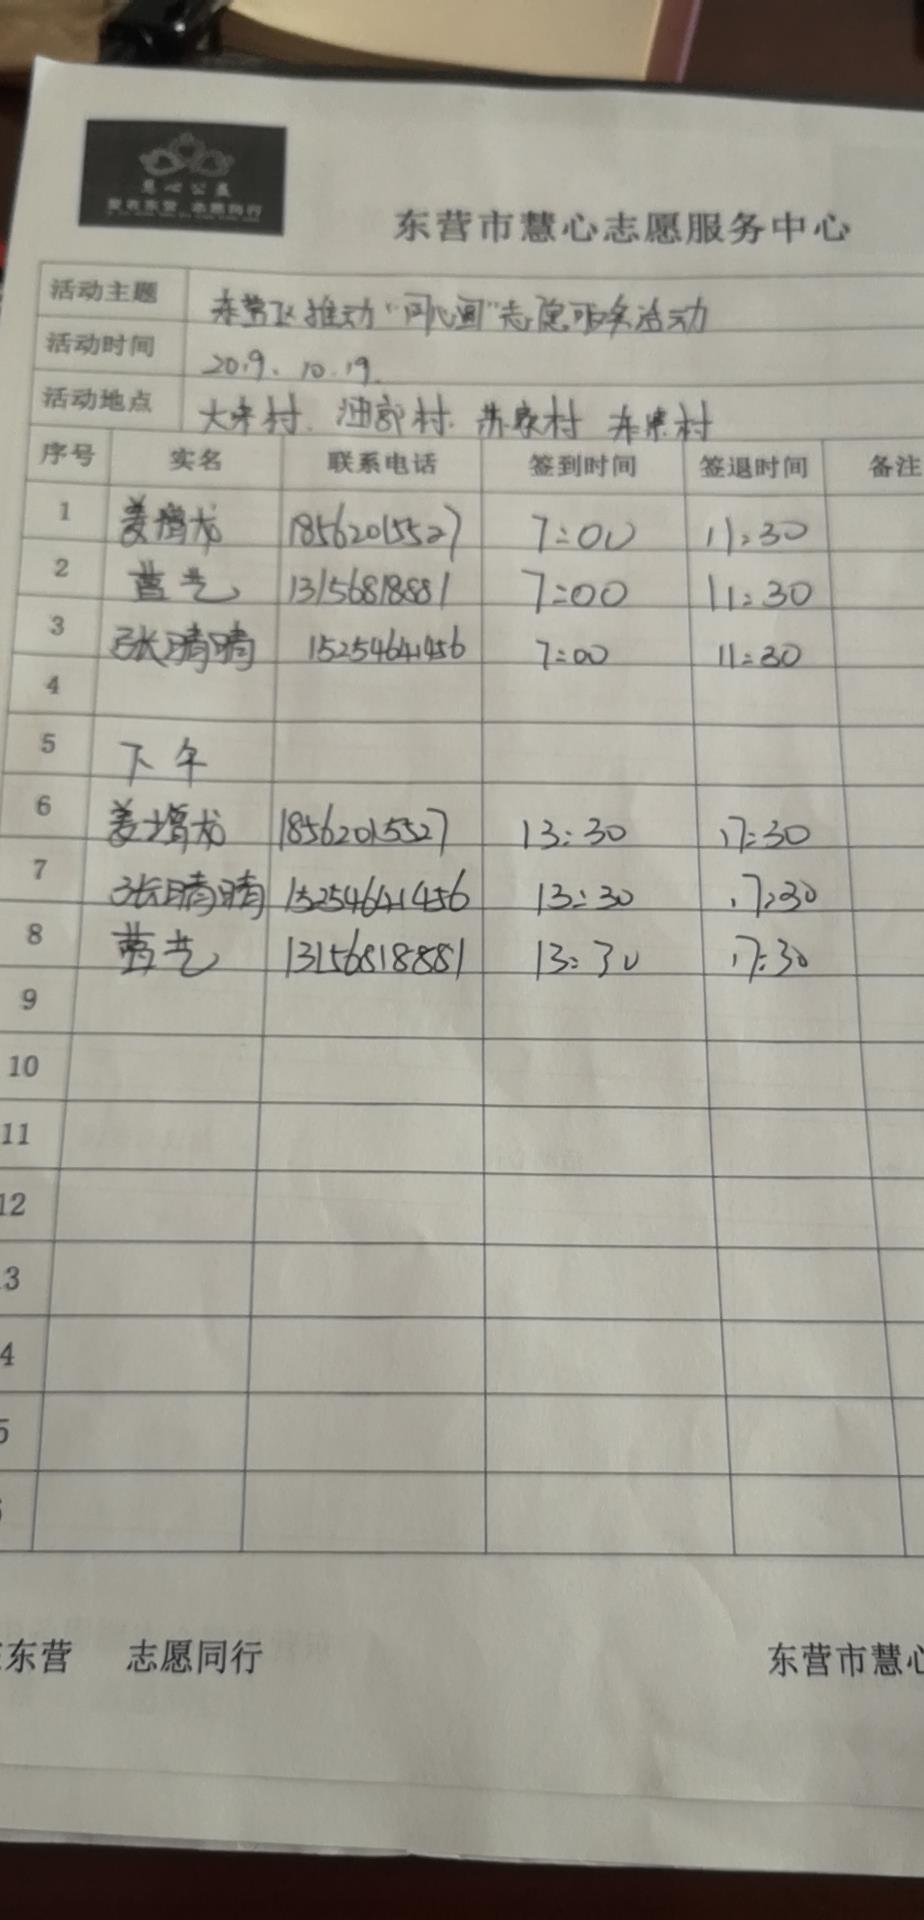 慧心公益
爱在东营 志愿同行
东营市慧心志愿服务中心
活动主题 东营区推动“同心圆”志愿服务活动
活动时间 2019.10.19.
活动地点 大宋村. 油郭村. 苏家村
序号 实名 联系电话 签到时间 签退时间 备注
1 姜增龙 18562015527 7:00 11:30
2 13156818881 7:00 11:30
3 张晴晴 15254641456 7:00 11:30
4
5 下午
6 姜增龙 18562015527 13:30 17:30
7 张晴晴 15254641456 13:30 17:30
8 13156818881 13:30 17:30
9
10
11
12
3
4
5
东营 志愿同行 东营市慧心